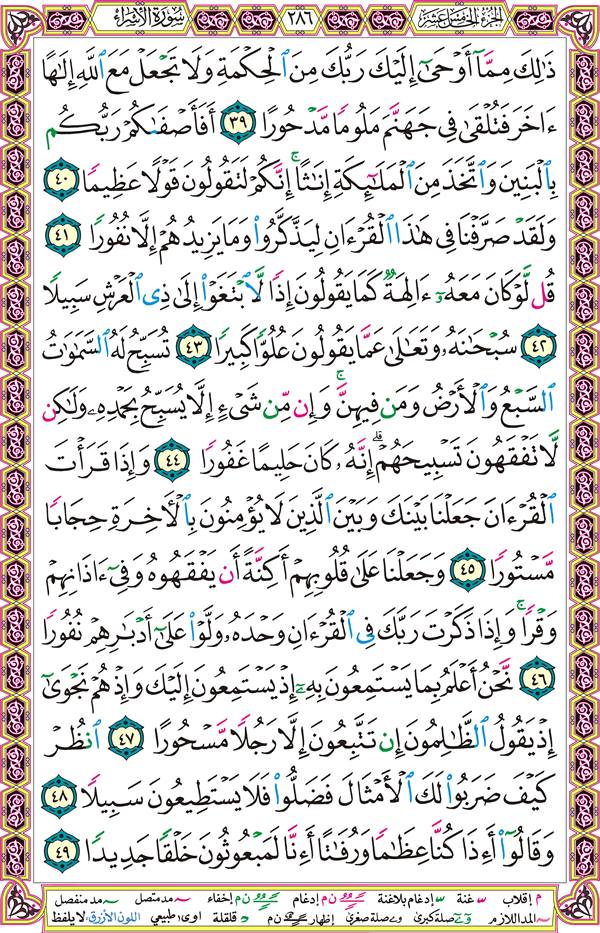 سُورَةُ الْإِسْرَاءِ ٢٨٦ الجُزْءُ الخَامِسَ عَشَرَ
ذَٰلِكَ مِمَّآ أَوْحَىٰٓ إِلَيْكَ رَبُّكَ مِنَ ٱلْحِكْمَةِ وَلَا تَجْعَلْ مَعَ ٱللَّهِ إِلَٰهًا
ءَاخَرَ فَتُلْقَىٰ فِى جَهَنَّمَ مَلُومًا مَّدْحُورًا ٣٩ أَفَأَصْفَىٰكُمْ رَبُّكُم
بِٱلْبَنِينَ وَٱتَّخَذَ مِنَ ٱلْمَلَٰٓئِكَةِ إِنَٰثًا ۚ إِنَّكُمْ لَتَقُولُونَ قَوْلًا عَظِيمًا ٤٠
وَلَقَدْ صَرَّفْنَا فِى هَٰذَا ٱلْقُرْءَانِ لِيَذَّكَّرُوا۟ وَمَا يَزِيدُهُمْ إِلَّا نُفُورًا ٤١
قُل لَّوْ كَانَ مَعَهُۥٓ ءَالِهَةٌ كَمَا يَقُولُونَ إِذًا لَّٱبْتَغَوْا۟ إِلَىٰ ذِى ٱلْعَرْشِ سَبِيلًا
٤٢ سُبْحَٰنَهُۥ وَتَعَٰلَىٰ عَمَّا يَقُولُونَ عُلُوًّا كَبِيرًا ٤٣ تُسَبِّحُ لَهُ ٱلسَّمَٰوَٰتُ
ٱلسَّبْعُ وَٱلْأَرْضُ وَمَن فِيهِنَّ ۚ وَإِن مِّن شَىْءٍ إِلَّا يُسَبِّحُ بِحَمْدِهِۦ وَلَٰكِن
لَّا تَفْقَهُونَ تَسْبِيحَهُمْ ۗ إِنَّهُۥ كَانَ حَلِيمًا غَفُورًا ٤٤ وَإِذَا قَرَأْتَ
ٱلْقُرْءَانَ جَعَلْنَا بَيْنَكَ وَبَيْنَ ٱلَّذِينَ لَا يُؤْمِنُونَ بِٱلْءَاخِرَةِ حِجَابًا
مَّسْتُورًا ٤٥ وَجَعَلْنَا عَلَىٰ قُلُوبِهِمْ أَكِنَّةً أَن يَفْقَهُوهُ وَفِىٓ ءَاذَانِهِمْ
وَقْرًا ۚ وَإِذَا ذَكَرْتَ رَبَّكَ فِى ٱلْقُرْءَانِ وَحْدَهُۥ وَلَّوْا۟ عَلَىٰٓ أَدْبَٰرِهِمْ نُفُورًا
٤٦ نَّحْنُ أَعْلَمُ بِمَا يَسْتَمِعُونَ بِهِۦٓ إِذْ يَسْتَمِعُونَ إِلَيْكَ وَإِذْ هُمْ نَجْوَىٰٓ
إِذْ يَقُولُ ٱلظَّٰلِمُونَ إِن تَتَّبِعُونَ إِلَّا رَجُلًا مَّسْحُورًا ٤٧ ٱنظُرْ
كَيْفَ ضَرَبُوا۟ لَكَ ٱلْأَمْثَالَ فَضَلُّوا۟ فَلَا يَسْتَطِيعُونَ سَبِيلًا ٤٨
وَقَالُوٓا۟ أَءِذَا كُنَّا عِظَٰمًا وَرُفَٰتًا أَءِنَّا لَمَبْعُوثُونَ خَلْقًا جَدِيدًا ٤٩
م إقلاب غنة إدغام بلاغنة ن م إدغام إخفاء مد متصل مد منفصل
المد اللازم صلة كبرى صلة صغرى إظهار ن م قلقلة اوى طبيعي اللون الأزرق لا يلفظ